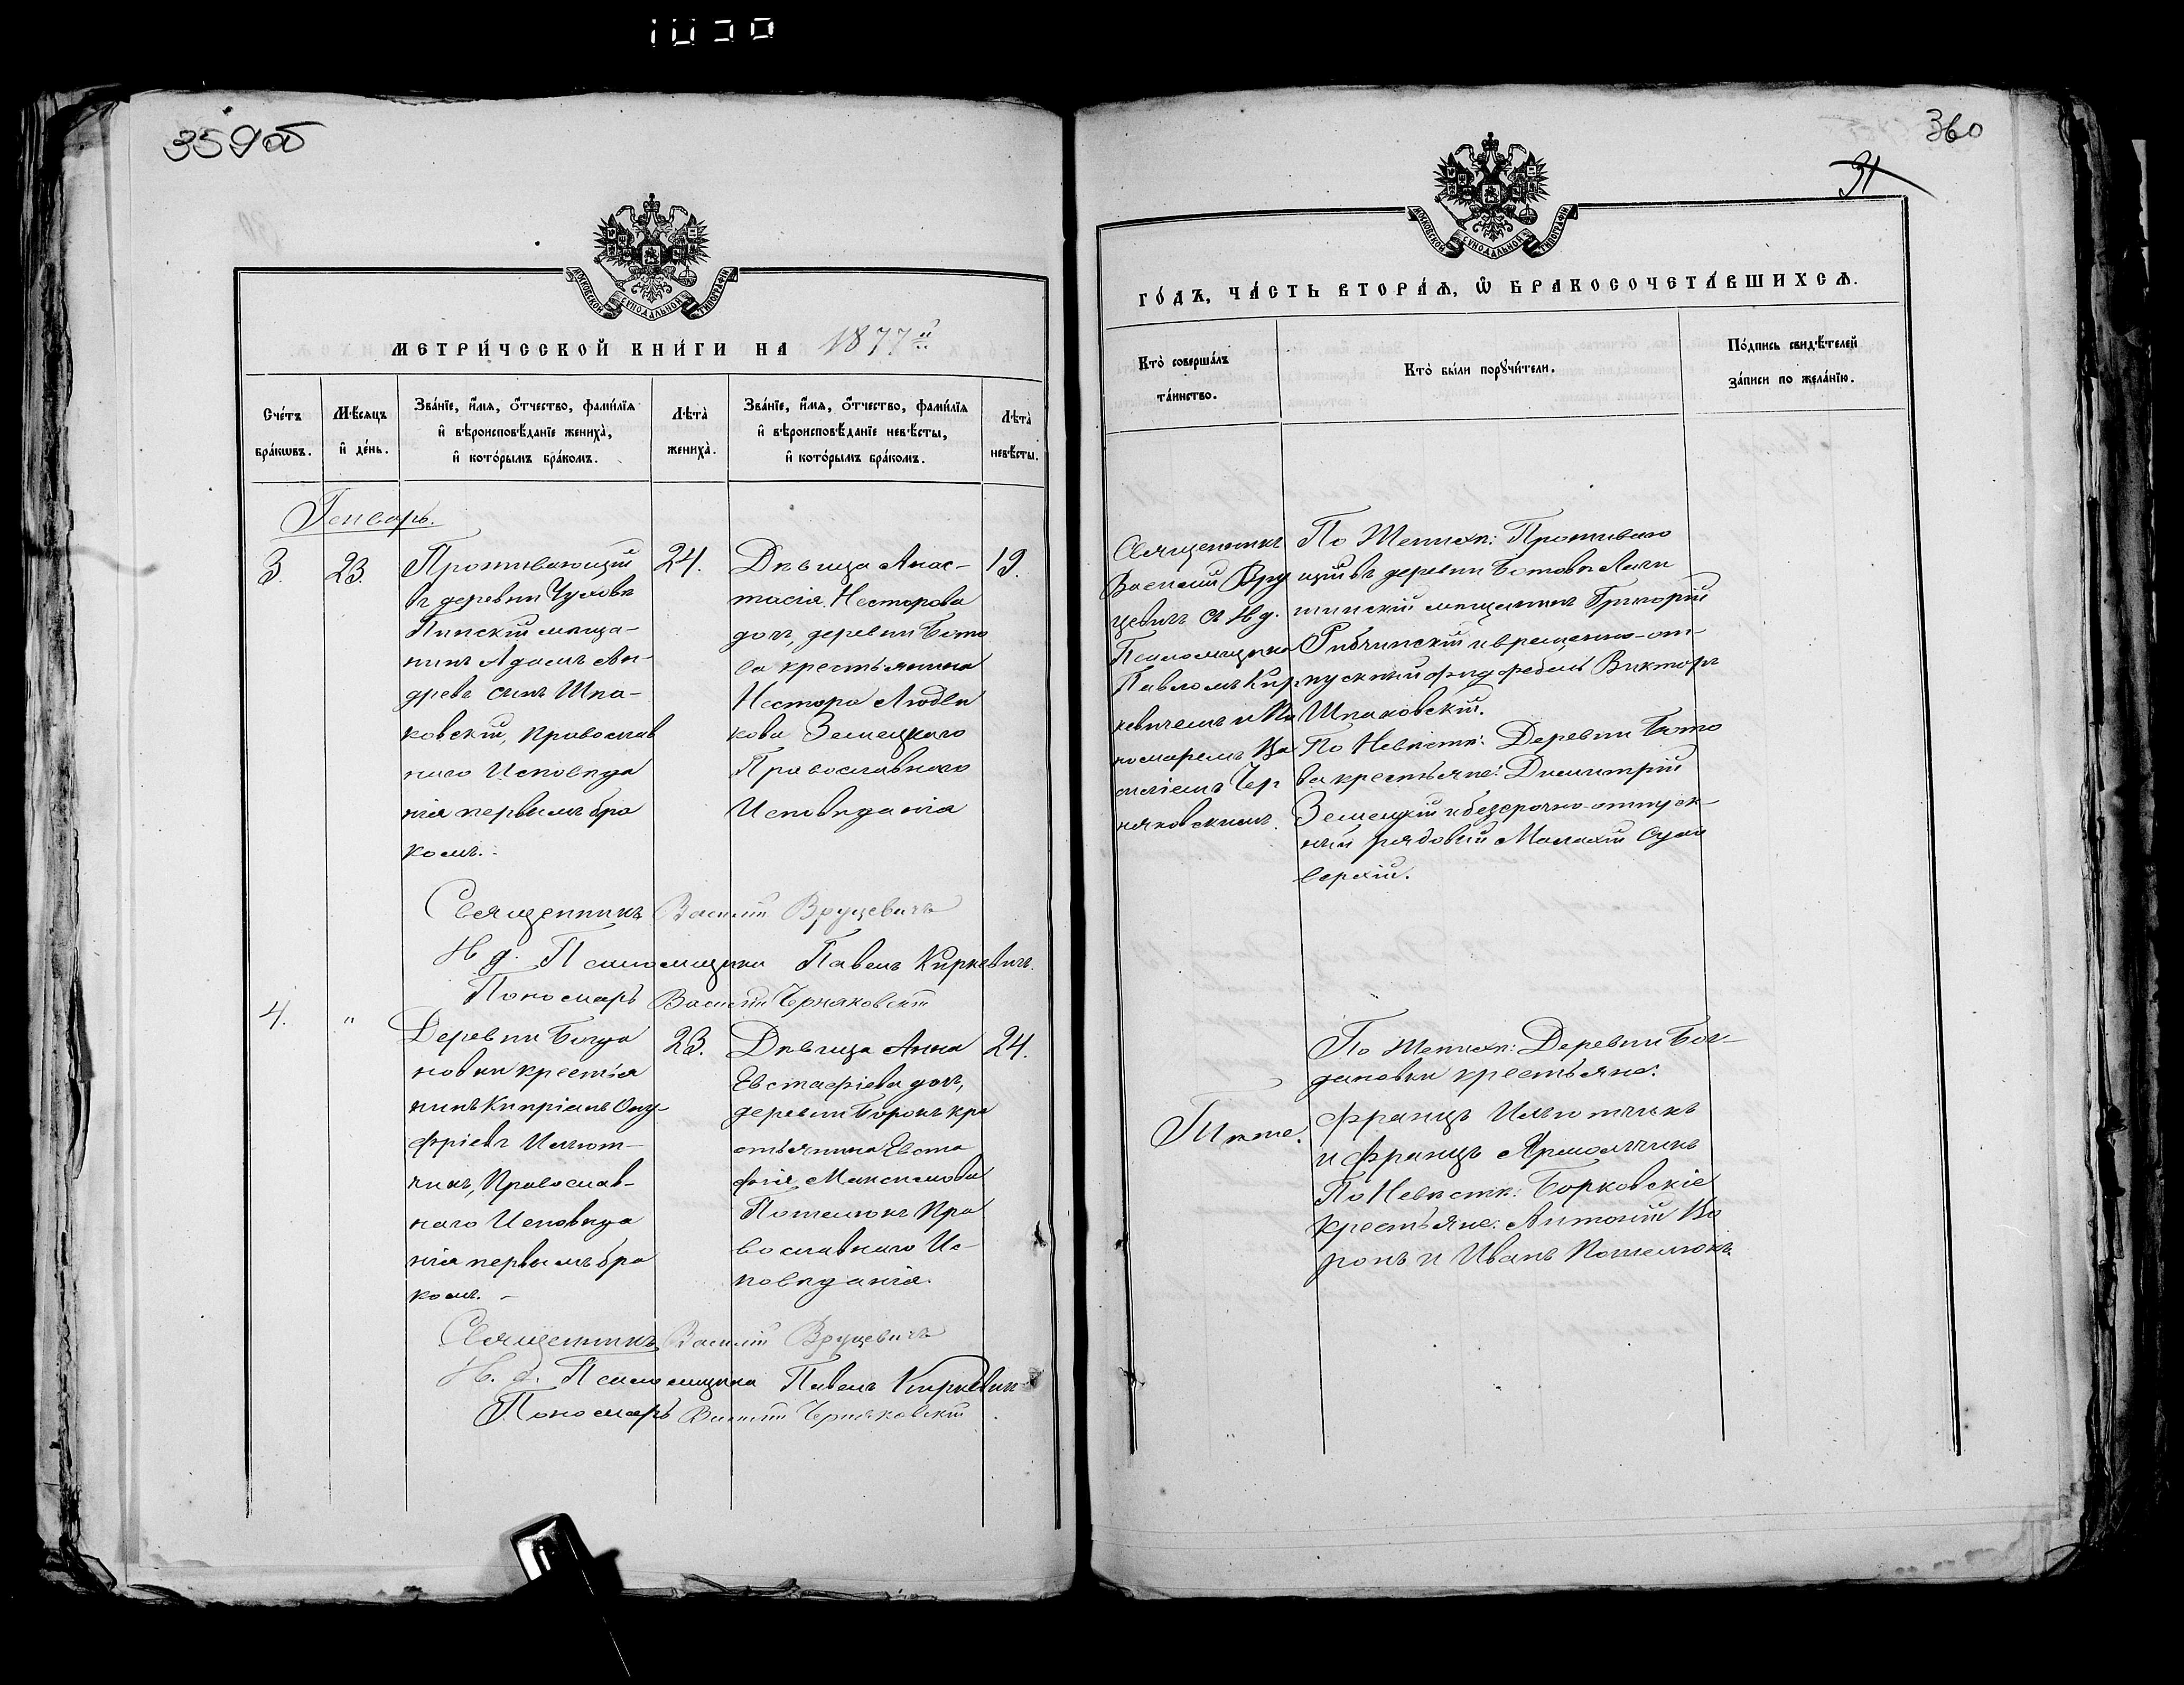 1030
359об
МОСКОВСКОЙ СѴНОДАЛЬНОЙ ТИПОГРАФІИ
МЕТРИ́ЧЕСКОЙ КНИ́ГИ НА 1877й
Сче́тъ бра́кѡвъ.
Мѣ́сяцъ и҆ де́нь.
Зва́нїе, и҆́мѧ, ѻ҆́тчество, фами́лїѧ и҆ вѣроисповѣ́данїе жениха̀, и҆ кото́рымъ бра́комъ.
Лѣта̀ жениха̀.
Зва́нїе, и҆́мѧ, ѻ҆́тчество, фами́лїѧ и҆ вѣроисповѣ́данїе невѣ́сты, и҆ кото́рымъ бра́комъ.
Лѣта̀ невѣ́сты.
Генварь.
3.
23.
Проживающій
въ деревни
Пинскій мѣща-
нинъ Адамъ Ан-
древъ сынъ Шпа-
ковскій, православ
наго Исповѣда
нія первымъ бра
комъ.
24.
Дѣвица Анас-
тасія Несторова
дочь, деревни Бото
ва крестьянина
Нестора
Земецкаго
Православнаго
Исповѣданія
19.
Священникъ Василій Вруцевичъ
И д. Псаломщика Павелъ Киркевичъ.
Пономарь Василій Черняковскій
4.
"
Деревни Богда
новки крестья
нинъ Кипріанъ Ону-
фріевъ Ильют-
чикъ, Православ-
наго Исповѣда
нія первымъ бра
комъ. -
23.
Дѣвица Анна
Евстафіева дочь,
деревни Борокъ кре
стьянина Евста
фія Максимова
Пошелюкъ Пра
вославнаго Ис-
повѣданія.
24.
Священникъ Василій Вруцевичъ
И. д. Псаломщика Павелъ Киркевич
Пономарь Василій Черняковскій
360
31
МОСКОВСКОЙ СѴНОДАЛЬНОЙ ТИПОГРАФІИ
ГО́ДЪ, ЧА́СТЬ ВТОРА́Ѧ, Ѡ҆ БРАКОСОЧЕТА́ВШИХСѦ.
Кто̀ соверша́лъ та́инство.
Кто̀ бы́ли порꙋчи́тели.
По́дпись свидѣ́телей за́писи по жела́нїю.
Священникъ
Василій Вру
цевичъ съ И д.
Псаломщика
Павломъ Кир
кевичемъ и По
номаремъ Ва
силіемъ Чер
няковскимъ.
По Женихѣ: Проживаю
щій въ деревни Ботовѣ
мѣщанинъ Григорій
и временно-от-
пускный фельдфебель Викторъ
Шпаковскій.
По Невѣстѣ: Деревни Бото
ва крестьяне: Димитрій
Земецкій и безсрочно-отпуск-
ный рядовый Малахій
По Женихѣ: Деревни Бог-
дановки крестьяне:
Францъ Ильютчикъ
и Францъ Ярмольчикъ
По Невѣстѣ: Борковскіе
крестьяне: Антоній Во
ронъ и Иванъ Пошелюкъ
Тиже.